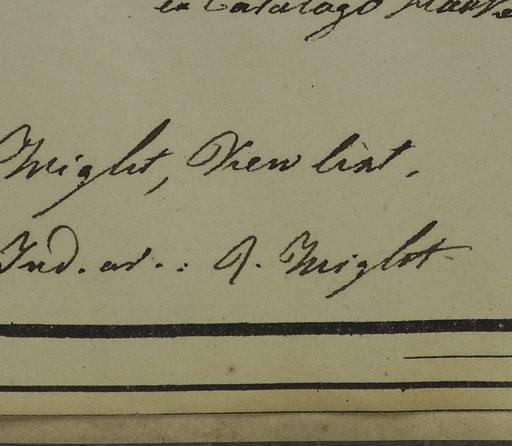 ex Catalogo
Wight, View list.
Ind. or.: R. Wight